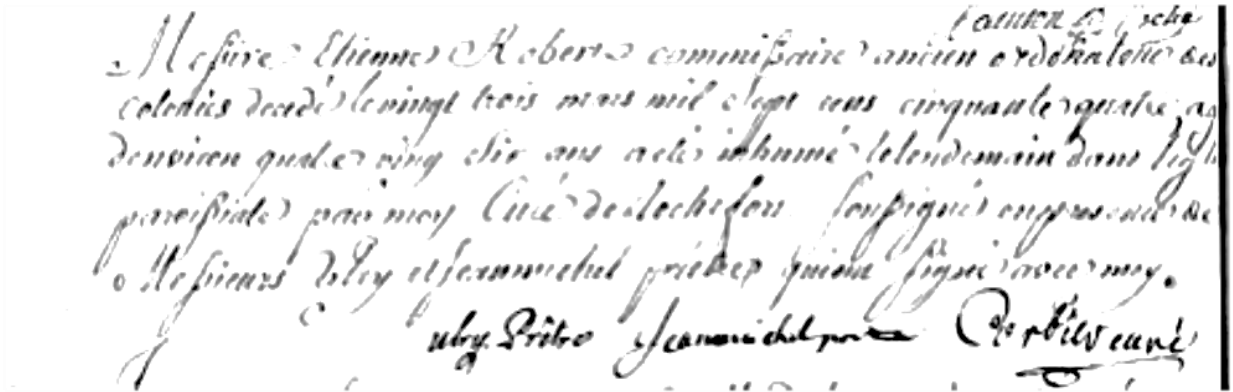 Messire Etienne Robert commissaire ancien ordonateur des
colonies decedé le vingt trois mars mil sept cens cinquante quatre ag
denviron quatre vingt dix ans a eté inhumé le lendemain dans legl
paroissiale par moy Curé de Rochefort soussigné en presence de
Messieurs Ulry et Jeanmichel prêtres qui ont signé avec moy.
ulry Prêtre Jeanmichel curé